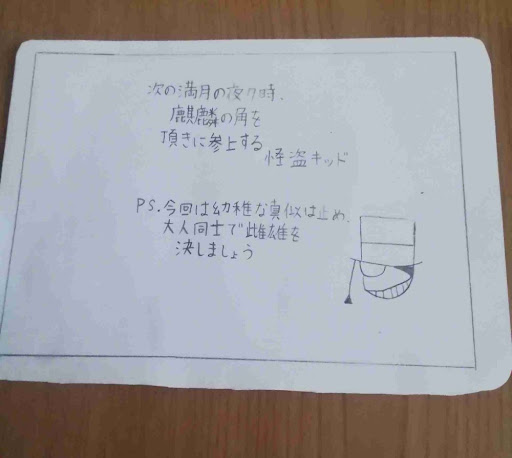 次の満月の夜7時、
麒麟の角を
頂きに参上する
怪盗キッド
PS.今回は幼稚な真似は止め、
大人同士で雌雄を
決しましょう